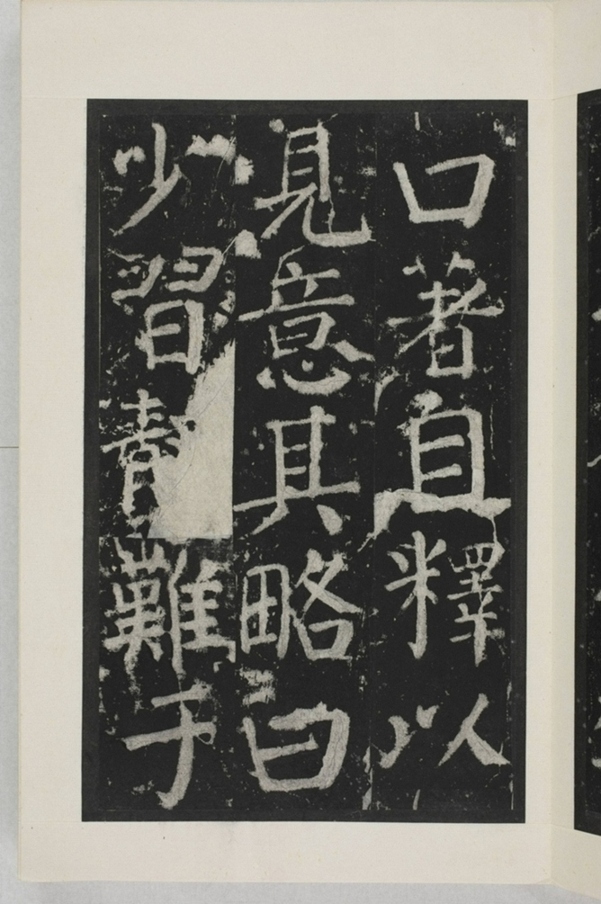 口著自釋以
見意其略曰
少習難于